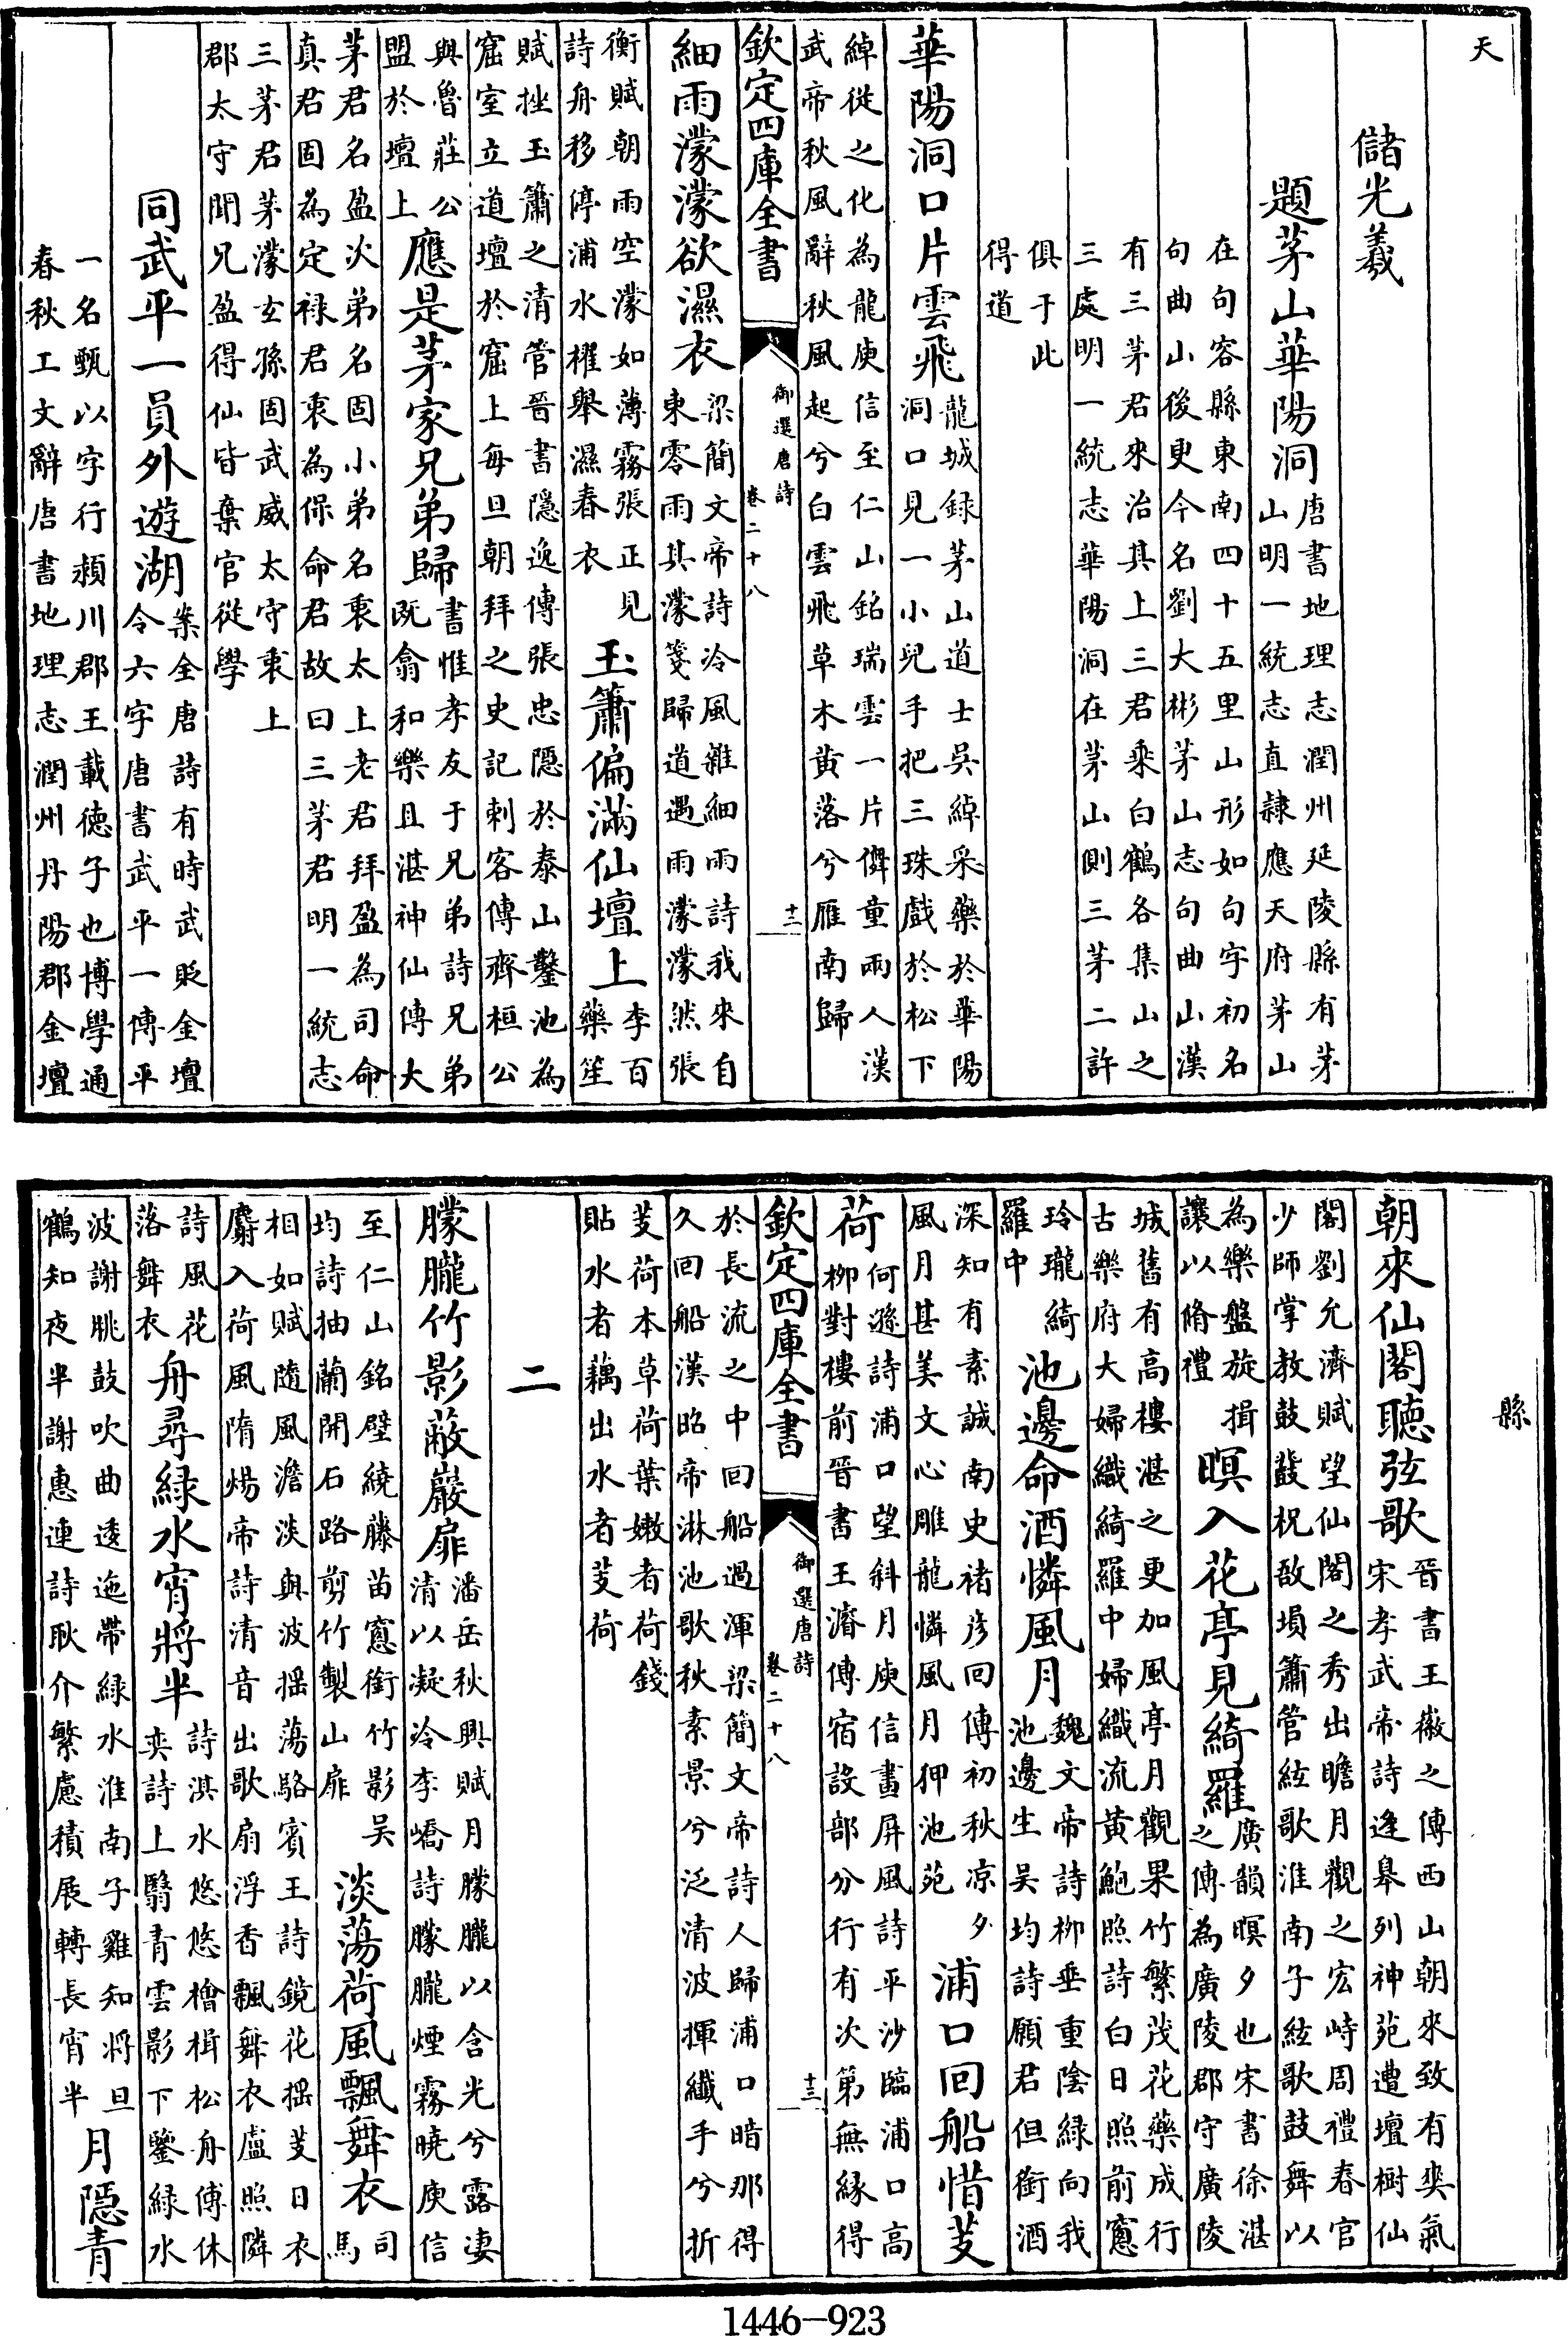 天
儲光羲
題茅山華陽洞唐書地理志潤州延陵縣有茅
山明一統志直隸應天府茅山
在句容縣東南四十五里山形如句字初名
句曲山後更今名劉大彬茅山志句曲山漢
有三茅君來治其上三君乘白鶴各集山之
三處明一統志華陽洞在茅山側三茅二許
俱于此
得道
華陽洞口片雲飛龍城録茅山道士吳綽采藥於華陽
洞口見一小兒手把三珠戲於松下
綽從之化為龍庾信至仁山銘瑞雲一片儛童兩人漢
武帝秋風辭秋風起兮白雲飛草木黄落兮雁南歸
欽定四庫全書
御選唐詩
卷二十八
十二
細雨濛濛欲濕衣梁簡文帝詩冷風雜細雨詩我來自
東零雨其濛箋歸道遇雨濛濛然張
衡賦朝雨空濛如薄霧張正見
詩舟移停浦水櫂舉濕春衣
玉簫偏滿仙壇上李百
藥笙
賦挫玉簫之清管晉書隱逸傳張忠隱於泰山鑿池為
窟室立道壇於窟上每旦朝拜之史記刺客傳齊桓公
與魯莊公
盟於壇上
應是茅家兄弟歸書惟孝友于兄弟詩兄弟
既翕和樂且湛神仙傳大
茅君名盈次弟名固小弟名衷太上老君拜盈為司命
真君固為定禄君衷為保命君故曰三茅君明一統志
三茅君茅濛玄孫固武威太守衷上
郡太守聞兄盈得仙皆棄官從學
同武平一員外遊湖案全唐詩有時武貶金壇
令六字唐書武平一傳平
一名甄以字行潁川郡王載徳子也博學通
春秋工文辭唐書地理志潤州丹陽郡金壇
縣
朝來仙閣聽弦歌晉書王徽之傳西山朝來致有爽氣
宋孝武帝詩逢皋列神苑遭壇樹仙
閣劉允濟賦望仙閣之秀出瞻月觀之宏峙周禮春官
少師掌教鼓鼗柷敔塤簫管絃歌淮南子絃歌鼓舞以
為樂盤旋揖
讓以脩禮
暝入花亭見綺羅廣韻暝夕也宋書徐湛
之傳為廣陵郡守廣陵
城舊有高樓湛之更加風亭月觀果竹繁茂花藥成行
古樂府大婦織綺羅中婦織流黄鮑照詩白日照前窻
玲瓏綺
羅中
池邊命酒憐風月魏文帝詩柳垂重陰緑向我
池邊生吴均詩願君但銜酒
深知有素誠南史褚彦回傳初秋凉夕
風月甚美文心雕龍憐風月狎池苑
浦口回船惜芰
荷何遜詩浦口望斜月庾信畫屏風詩平沙臨浦口高
柳對樓前晉書王濬傳宿設部分行有次第無緣得
欽定四庫全書
御選唐詩
卷二十八
十三
於長流之中回船過渾梁簡文帝詩人歸浦口暗那得
久回船漢昭帝淋池歌秋素景兮泛清波揮纖手兮折
芰荷本草荷葉嫩者荷錢
貼水者藕出水者芰荷
二
朦朧竹影蔽巖扉潘岳秋興賦月朦朧以含光兮露凄
清以凝冷李嶠詩朦朧煙霧曉庾信
至仁山銘壁繞藤苗窻銜竹影吴
均詩抽蘭開石路剪竹製山扉
淡蕩荷風飄舞衣司
馬
相如賦隨風澹淡與波摇蕩駱賓王詩鏡花摇芰日衣
麝入荷風隋煬帝詩清音出歌扇浮香飄舞衣盧照隣
詩風花
落舞衣
舟尋緑水宵將半詩淇水悠悠檜楫松舟傅休
奕詩上翳青雲影下鑒緑水
波謝眺鼓吹曲逶迤帶緑水淮南子雞知將旦
鶴知夜半謝惠連詩耿介繁慮積展轉長宵半
月隱青
1446-923